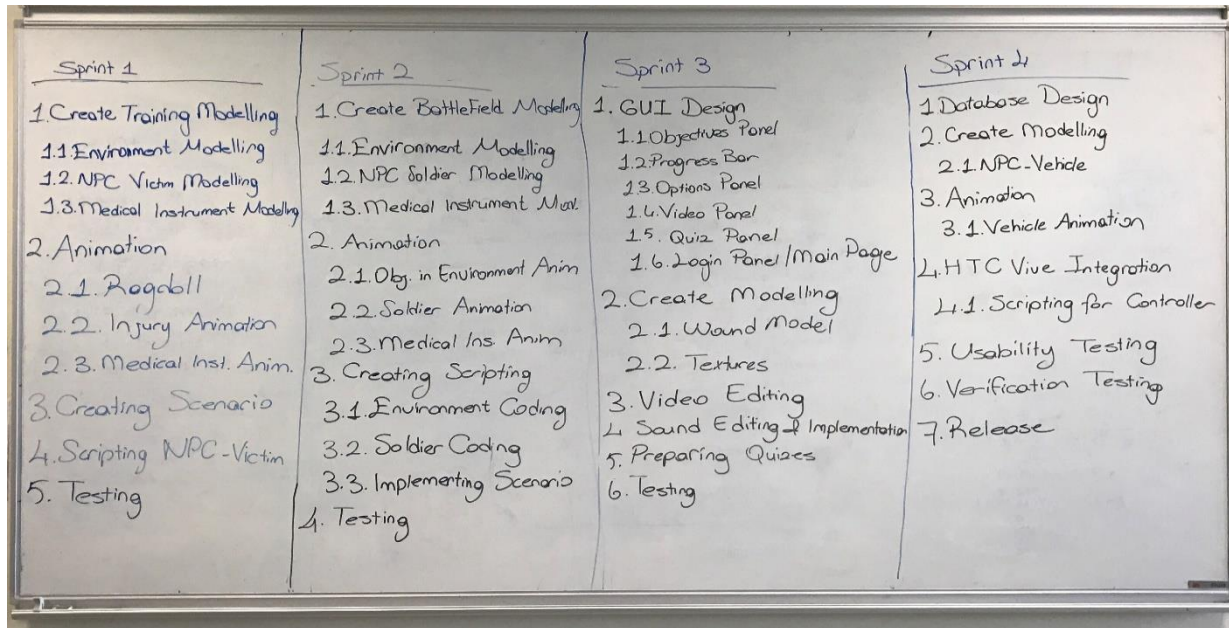 Sprint 1
1.Create Training Modelling
1.1.Environment Modelling
1.2.NPC Victm Modelling
1.3.Medical Instrument Modelling
2.Animation
2.1.Ragdoll
2.2.Injury Animation
2.3.Medical Inst. Anim.
3.Creating Scenario
4.Scripting NPC-Victim
5.Testing
Sprint 2
1.Create BattleField Modelling
1.1.Environment Modelling
1.2.NPC Soldier Modelling
1.3.Medical Instrument
2.Animation
2.1.Obj. in Environment Anim
2.2.Soldier Animation
2.3.Medical Ins. Anim
3.Creating Scripting
3.1.Environment Coding
3.2.Soldier Coding
3.3.Implementing Scenario
4.Testing
Sprint 3
1.GUI Design
1.1Objectives Panel
1.2.Progress Bar
1.3.Options Panel
1.4.Video Panel
1.5.Quiz Panel
1.6.Login Panel/Main Page
2.Create Modelling
2.1.Wound Model
2.2.Textures
3.Video Editing
4 Sound Editing & Implementation
5.Preparing Quizes
6.Testing
Sprint 4
1.Database Design
2.Create Modelling
2.1.NPC-Vehicle
3.Animation
3.1.Vehicle Animation
4.HTC Vive Integration
4.1.Scripting for Controller
5.Usability Testing
6.Verification Testing
7.Release